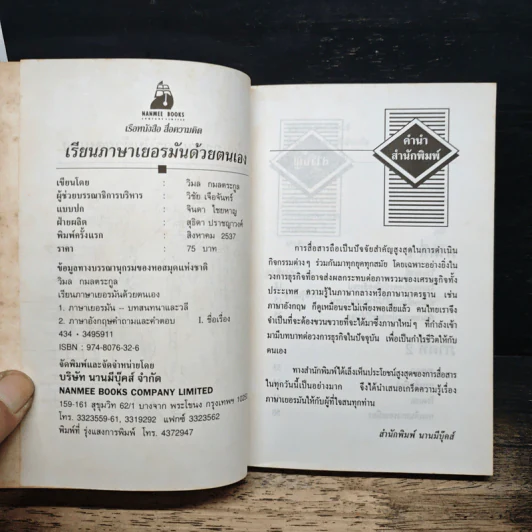 NANMEE BOOKS
COMPANY LIMITED
เรือหนังสือ สื่อความคิด
เรียนภาษาเยอรมันด้วยตนเอง
เขียนโดย : วิมล กมลตระกูล
ผู้ช่วยบรรณาธิการบริหาร : วิชัย เจือจันทร์
แบบปก : จินดา ไชยหาญ
ฝ่ายผลิต : สุธิดา ปราชญาวงศ์
พิมพ์ครั้งแรก : สิงหาคม 2537
ราคา : 75 บาท
ข้อมูลทางบรรณานุกรมของหอสมุดแห่งชาติ
วิมล กมลตระกูล
เรียนภาษาเยอรมันด้วยตนเอง
1. ภาษาเยอรมัน -- บทสนทนาและวลี
2. ภาษาอังกฤษคำถามและคำตอบ I. ชื่อเรื่อง
434 + 3495911
ISBN : 974-8076-32-6
จัดพิมพ์และจัดจำหน่ายโดย
บริษัท นานมีบุ๊คส์ จำกัด
NANMEE BOOKS COMPANY LIMITED
159-161 สุขุมวิท 62/1 บางจาก พระโขนง กรุงเทพฯ
โทร. 3323559-61, 3319292 แฟกซ์ 3323562
พิมพ์ที่ รุ่งแสงการพิมพ์ โทร. 4372947
คำนำ
สำนักพิมพ์
การสื่อสารถือเป็นปัจจัยสำคัญสูงสุดในการดำเนิน
กิจกรรมต่างๆ ร่วมกันมาทุกยุคทุกสมัย โดยเฉพาะอย่างยิ่งใน
วงการธุรกิจที่อาจส่งผลกระทบต่อภาพรวมของเศรษฐกิจทั้ง
ประเทศ ความรู้ในภาษากลางหรือภาษามาตรฐาน เช่น
ภาษาอังกฤษ ก็ดูเหมือนจะไม่เพียงพอเสียแล้ว คนไทยเราจึง
จำเป็นที่จะต้องขวนขวายที่จะได้มาซึ่งภาษาใหม่ๆ ที่กำลังเข้า
มามีบทบาทต่อวงการธุรกิจในปัจจุบัน เพื่อเป็นกำไรชีวิตให้กับ
ตนเอง
ทางสำนักพิมพ์ได้เล็งเห็นประโยชน์สูงสุดของการสื่อสาร
ในทุกวันนี้เป็นอย่างมาก จึงได้นำเสนอเกร็ดความรู้เรื่อง
ภาษาเยอรมันให้กับผู้ที่ใจสนทุกท่าน
สำนักพิมพ์ นานมีบุ๊คส์